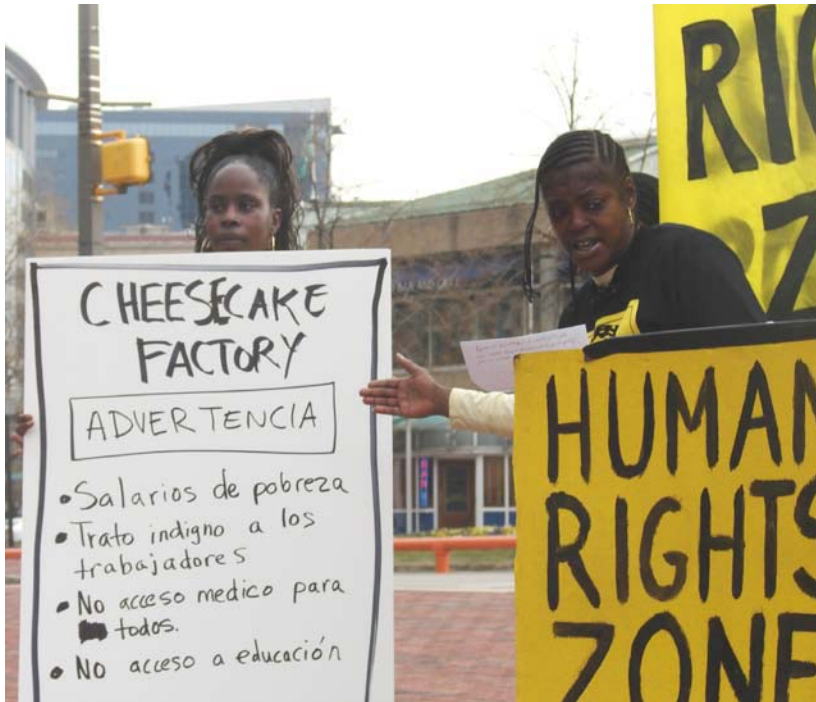 CHEESECAKE
FACTORY
ADVERTENCIA
• Salarios de pobreza
• Trato indigno a los
trabajadores
• No acceso medico para
todos.
• No acceso a educación
RIG
Z
HUMAN
RIGHTS
ZONE